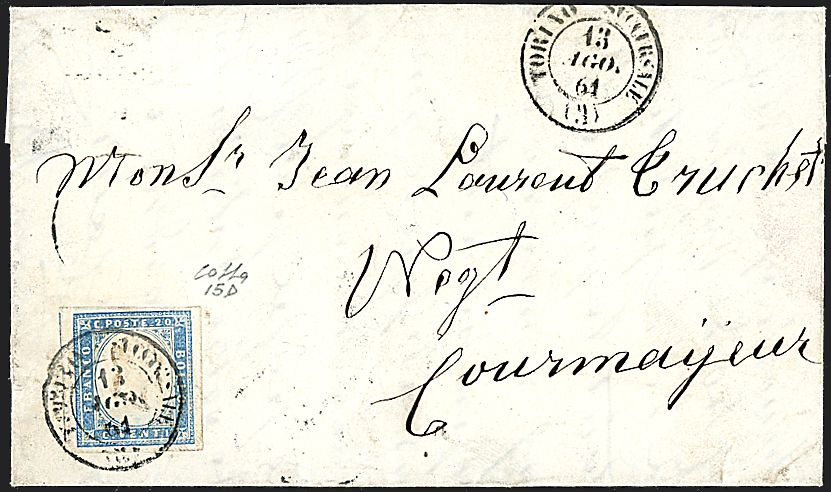 TORINO SUCCURSALE
13
AGO.
61
(3)
Monsr. Jean Laurent Truchet
Negt
Courmayeur
15D
C. POSTE 20
FRANCO
BOL
CENTI
13
AGO.
61